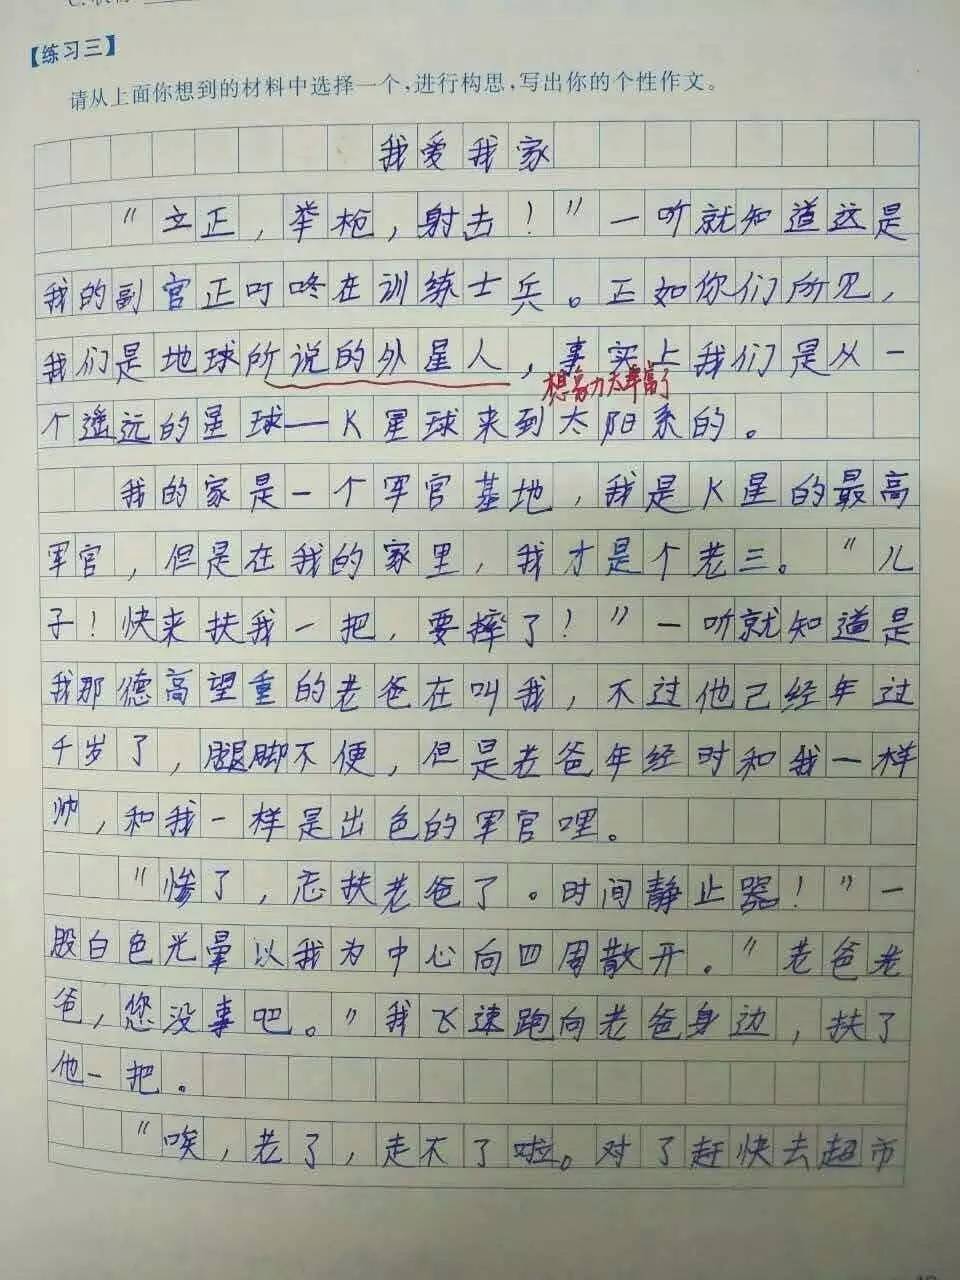 【练习三】
请从上面你想到的材料中选择一个,进行构思,写出你的个性作文。
我爱我家
"立正,举枪,射击!"一听就知道这是
我的副官正叮咚在训练士兵。正如你们所见,
我们是地球所说的外星人,事实上我们是从一
想象力太丰富了
个遥远的星球——K星球来到太阳系的。
我的家是一个军官基地,我是K星的最高
军官,但是在我的家里,我才是个老三。"儿
子!快来扶我一把,要摔了!"一听就知道是
我那德高望重的老爸在叫我,不过他已经年过
千岁了,腿脚不便,但是老爸年经时和我一样
帅,和我一样是出色的军官哩。
"惨了,忘扶老爸了。时间静止器!"一
股白色光晕以我为中心向四周散开。"老爸老
爸,您没事吧。"我飞速跑向老爸身边,扶了
他一把。
"唉,老了,走不了啦。对了赶快去超市